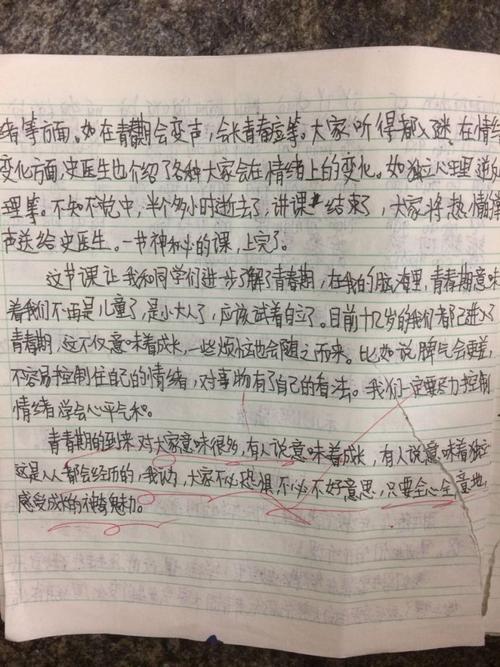 绪等方面。如在青春期会变声，会长青春痘等。大家听得都入迷。在情绪
变化方面,史医生也介绍了各种大家会在情绪上的变化。如独立心理逆反
理等。不知不觉中，半个多小时逝去了，讲课结束了，大家将热情的掌
声送给史医生。一节神秘的课，上完了。
这节课让我和同学们进步了解了青春期，在我的脑海里，青春期意味
着我们不再是儿童了，是小大人了，应该试着自立了。目前十几岁的我们都已进入了
青春期，这不仅意味着成长，一些烦恼也会随之而来。比如说脾气会更差，
不容易控制住自己的情绪，对事物有了自己的看法。我们一定要尽力控制
情绪学会心平气和。
青春期的到来对大家意味很多，有人说意味着成长，有人说意味着独立
这是人人都会经历的，我认为，大家不必恐惧,不必不好意思，只要全心全意地,
感受成长的神秘魅力。